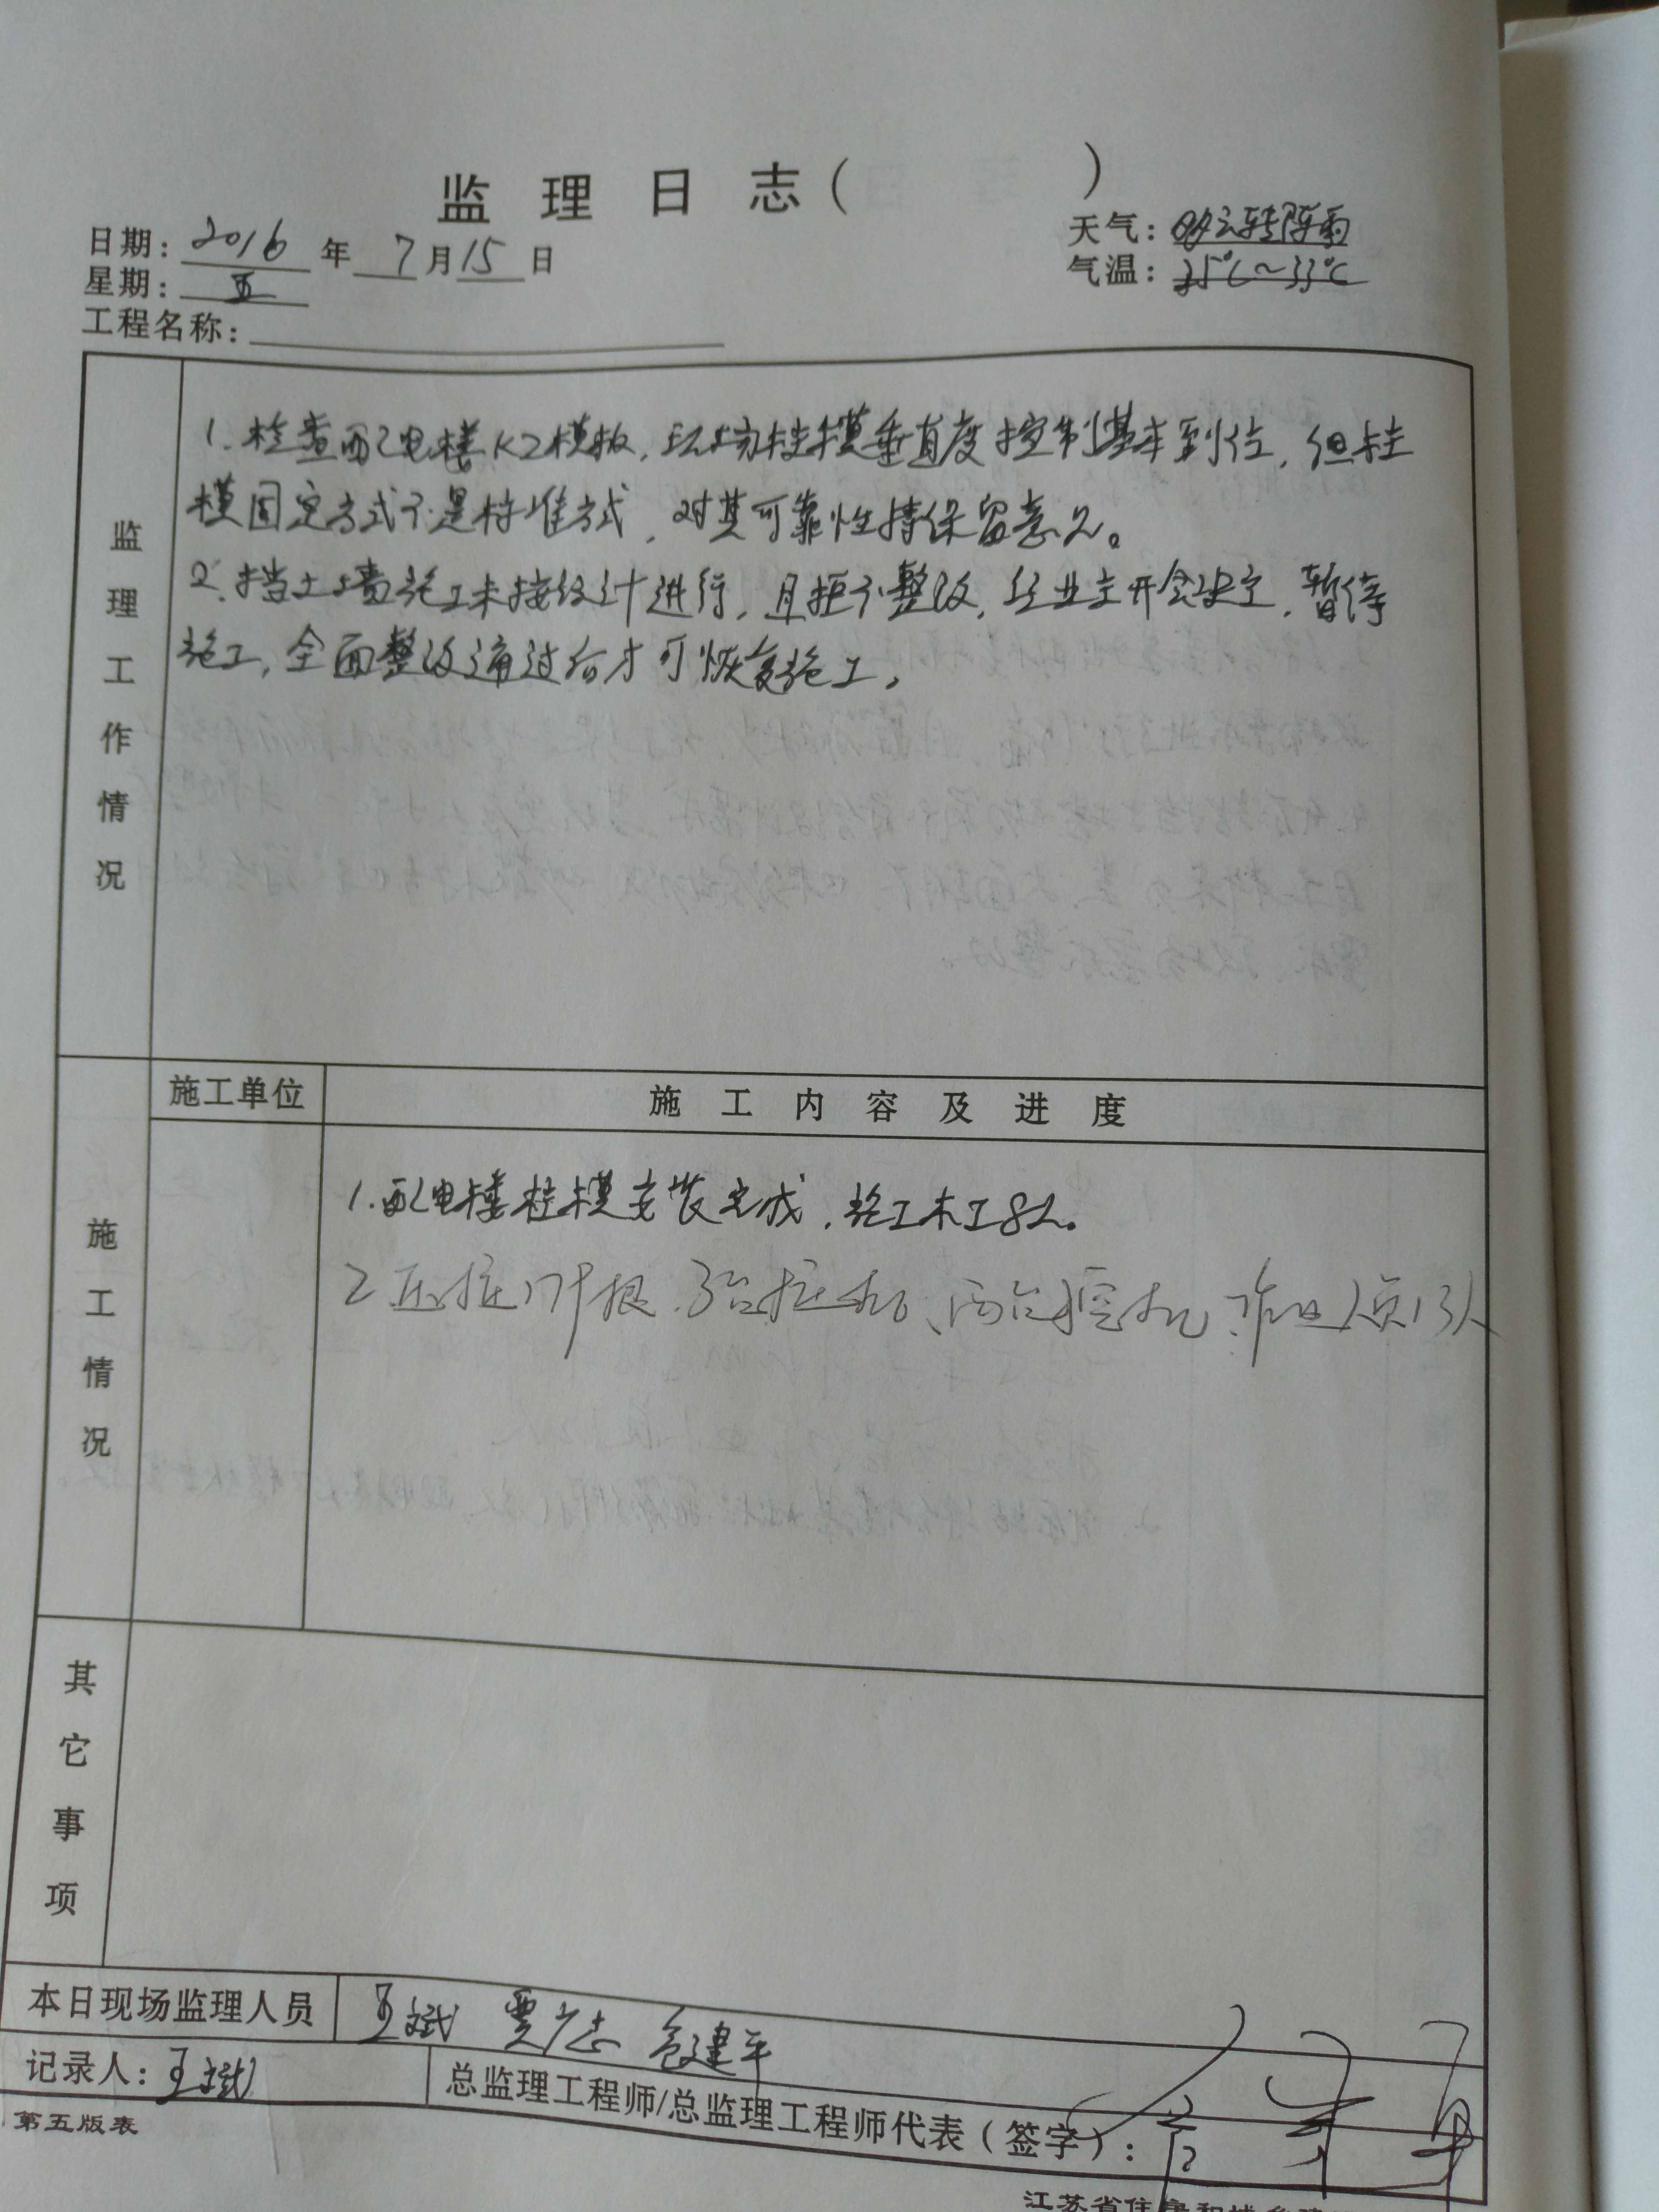 监理日志( )
日期: 2016 年 7 月 15 日
天气: 多云转阵雨
星期: 五
气温: 25℃~33℃
工程名称:
监理工作情况
1. 检查配电楼KZ模板, 现场柱模垂直度控制基本到位, 但柱
模固定方式不是标准方式, 对其可靠性持保留意见。
2. 挡土墙施工未按设计进行, 且拒不整改, 经业主开会决定, 暂停
施工, 全面整改通过后才可恢复施工。
施工情况
施工单位
施工内容及进度
1. 配电楼柱模安装完成, 施工木工8人。
2 压桩17根, 3台桩机、两台挖机, 作业人员13人
其它事项
本日现场监理人员
王斌 贾广志 包建平
记录人: 王斌
总监理工程师/总监理工程师代表(签字):
第五版表
江苏省住房和城乡建